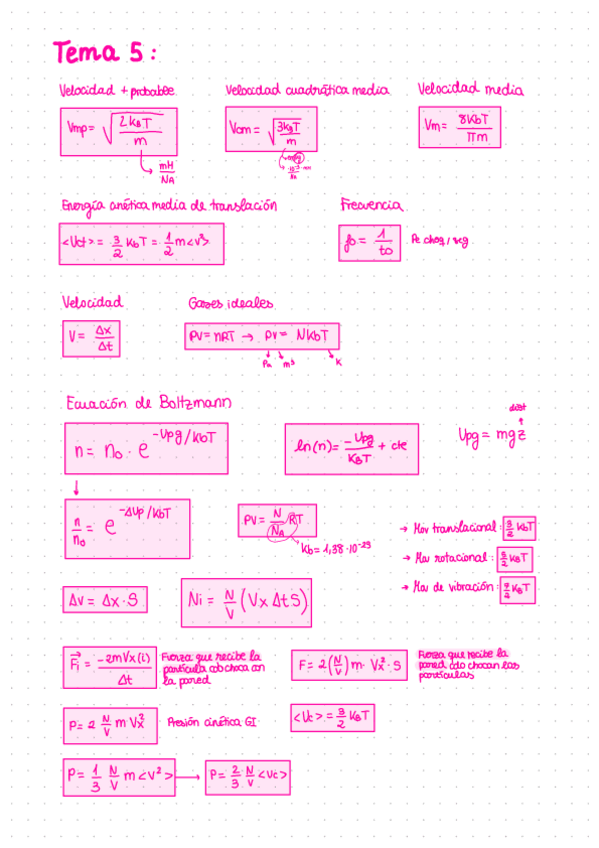 Tema 5:
Velocidad + probable
Vmp = √(2KBT/m)
mH/NA
Velocidad cuadrática media
Vcm = √(3KBT/m)
Velocidad media
Vm = 8KbT/πm
Energía cinética media de translación
<Uct> = 3/2 KbT = 1/2 m<v²>
Frecuencia
fo = 1/to
Velocidad
V = Δx/Δt
Gases ideales
PV = nRT → PV = NKbT
Pa m³ K
Ecuación de Boltzmann
n = no · e^(-Upg/KbT)
ln(n) = -Upg/KBT + cte
Upg = mgz
dist
n/no = e^(-ΔUp/KbT)
PV = N/NA RT
Kb = 1,38·10⁻²³
→ Mov translacional: 3/2 KbT
→ Mov rotacional: 5/2 KBT
→ Mov de vibración: 7/2 KBT
ΔV = Δx·S
Ni = N/V (Vx Δt S)
Fi = -2mVx(i)/Δt
Fuerza que recibe la
partícula cdo choca con
la pared
F = 2(N/V) m · Vx² · S
Fuerza que recibe la
pared cdo chocan las
partículas
P = 2 N/V m Vx²
Presión cinética GI
<Uc> = 3/2 KBT
P = 1/3 N/V m<v²> → P = 2/3 · N/V <Uc>